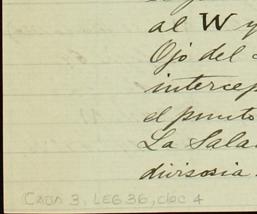 al W y
Ojo del
intercep
el punto
La Sala
divisoria
CAJA 3, LEG 36, doc 4